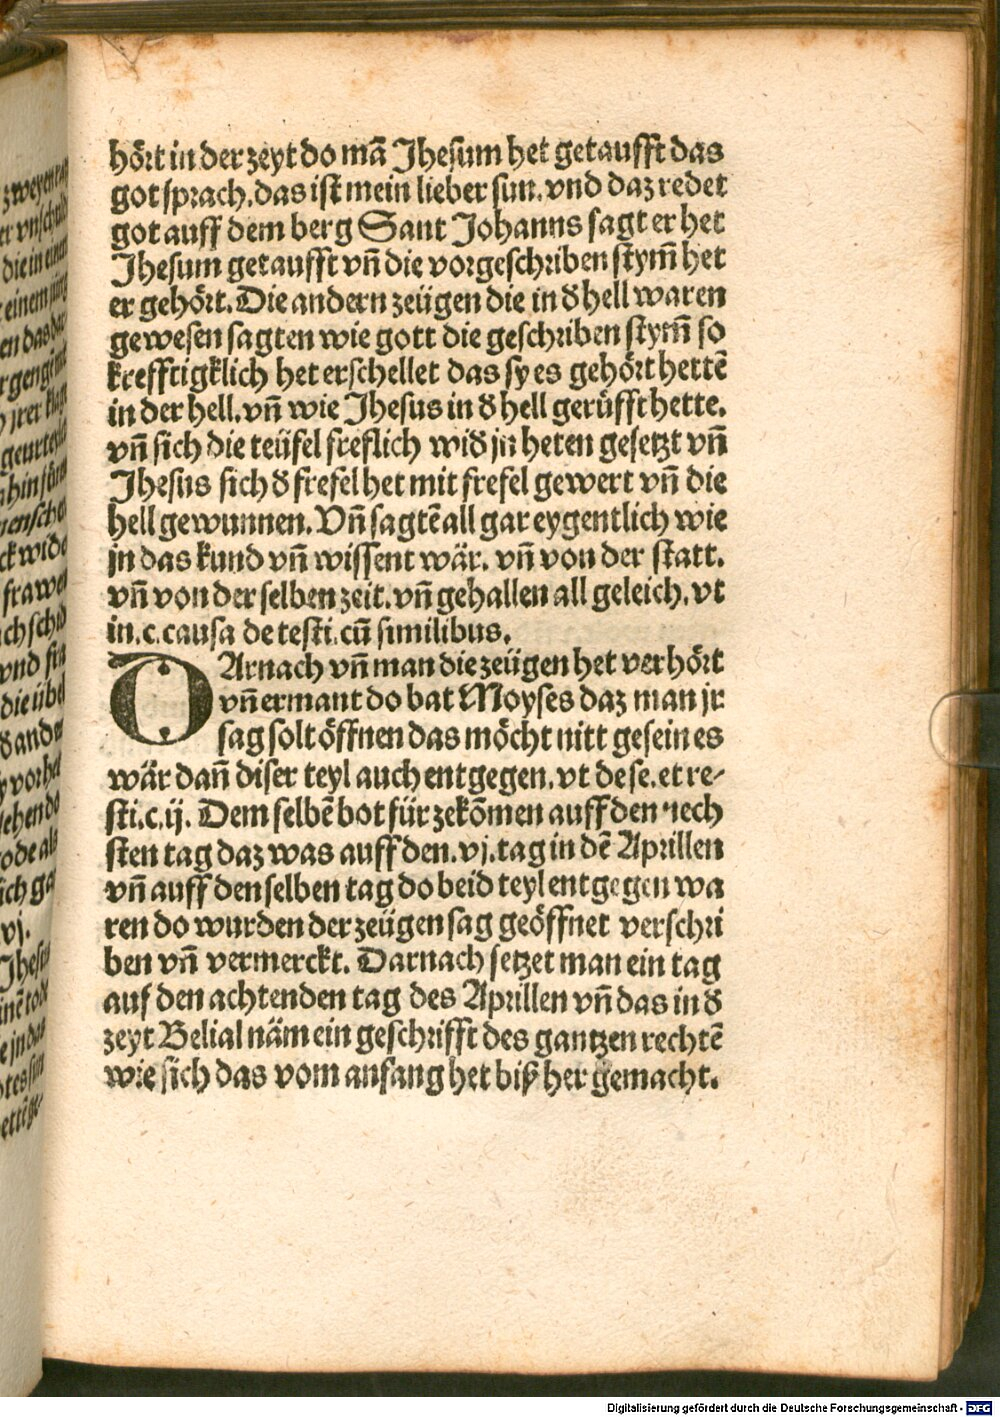 hört in der zeyt do mā Jhesum het getaufft das
got sprach. das ist mein lieber sun. vnd daz redet
got auff dem berg Sant Johanns sagt er het
Jhesum getaufft vñ die vorgeschriben stym̄ het
er gehört. Die andern zeügen die in d̕ hell waren
gewesen sagten wie gott die geschriben stym̄ so
krefftigklich het erschellet das sy es gehört hettē
in der hell. vñ wie Jhesus in d̕ hell gerüfft hette.
vñ sich die teüfel freflich wid̕ jn heten gesetzt vñ
Jhesus sich d̕ frefel het mit frefel gewert vñ die
hell gewunnen. Vñ sagtē all gar eygentlich wie
jn das kund vñ wissent wär. vñ von der statt.
vñ von der selben zeit. vñ gehallen all geleich. vt
in. c. causa de testi. cū similibus.
DArnach vñ man die zeügen het verhört
vñ ermant do bat Moyses daz man jr
sag solt öffnen das möcht nitt gesein es
wär dañ diser teyl auch entgegen. vt de se. et re-
sti. c. ij. Dem selbē bot für zekōmen auff den nech
sten tag daz was auff den. vj. tag in dē Aprillen
vñ auff den selben tag do beid teyl entgegen wa
ren do wurden der zeügen sag geöffnet verschri
ben vñ vermerckt. Darnach setzet man ein tag
auf den achtenden tag des Aprillen vñ das in d̕
zeyt Belial näm ein geschrifft des gantzen rechtē
wie sich das vom anfang het biß her gemacht.
Digitalisierung gefördert durch die Deutsche Forschungsgemeinschaft - DFG